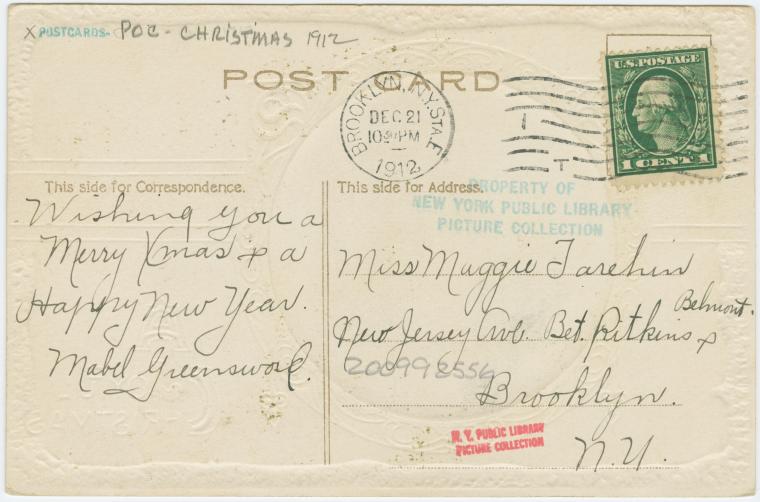 X POSTCARDS- POC - CHRISTMAS 1912
POST CARD
BROOKLYN, N.Y. STA. E
DEC 21
10 PM
1912
U.S. POSTAGE
1 CENT 1
This side for Correspondence.
This side for Address.
PROPERTY OF
NEW YORK PUBLIC LIBRARY
PICTURE COLLECTION
Wishing you a
Merry Xmas & a
Happy New Year.
Mabel
Miss Maggie
Belmont.
New Jersey Ave. Bet. Pitkins &
Brooklyn.
N.Y.
N. Y. PUBLIC LIBRARY
PICTURE COLLECTION